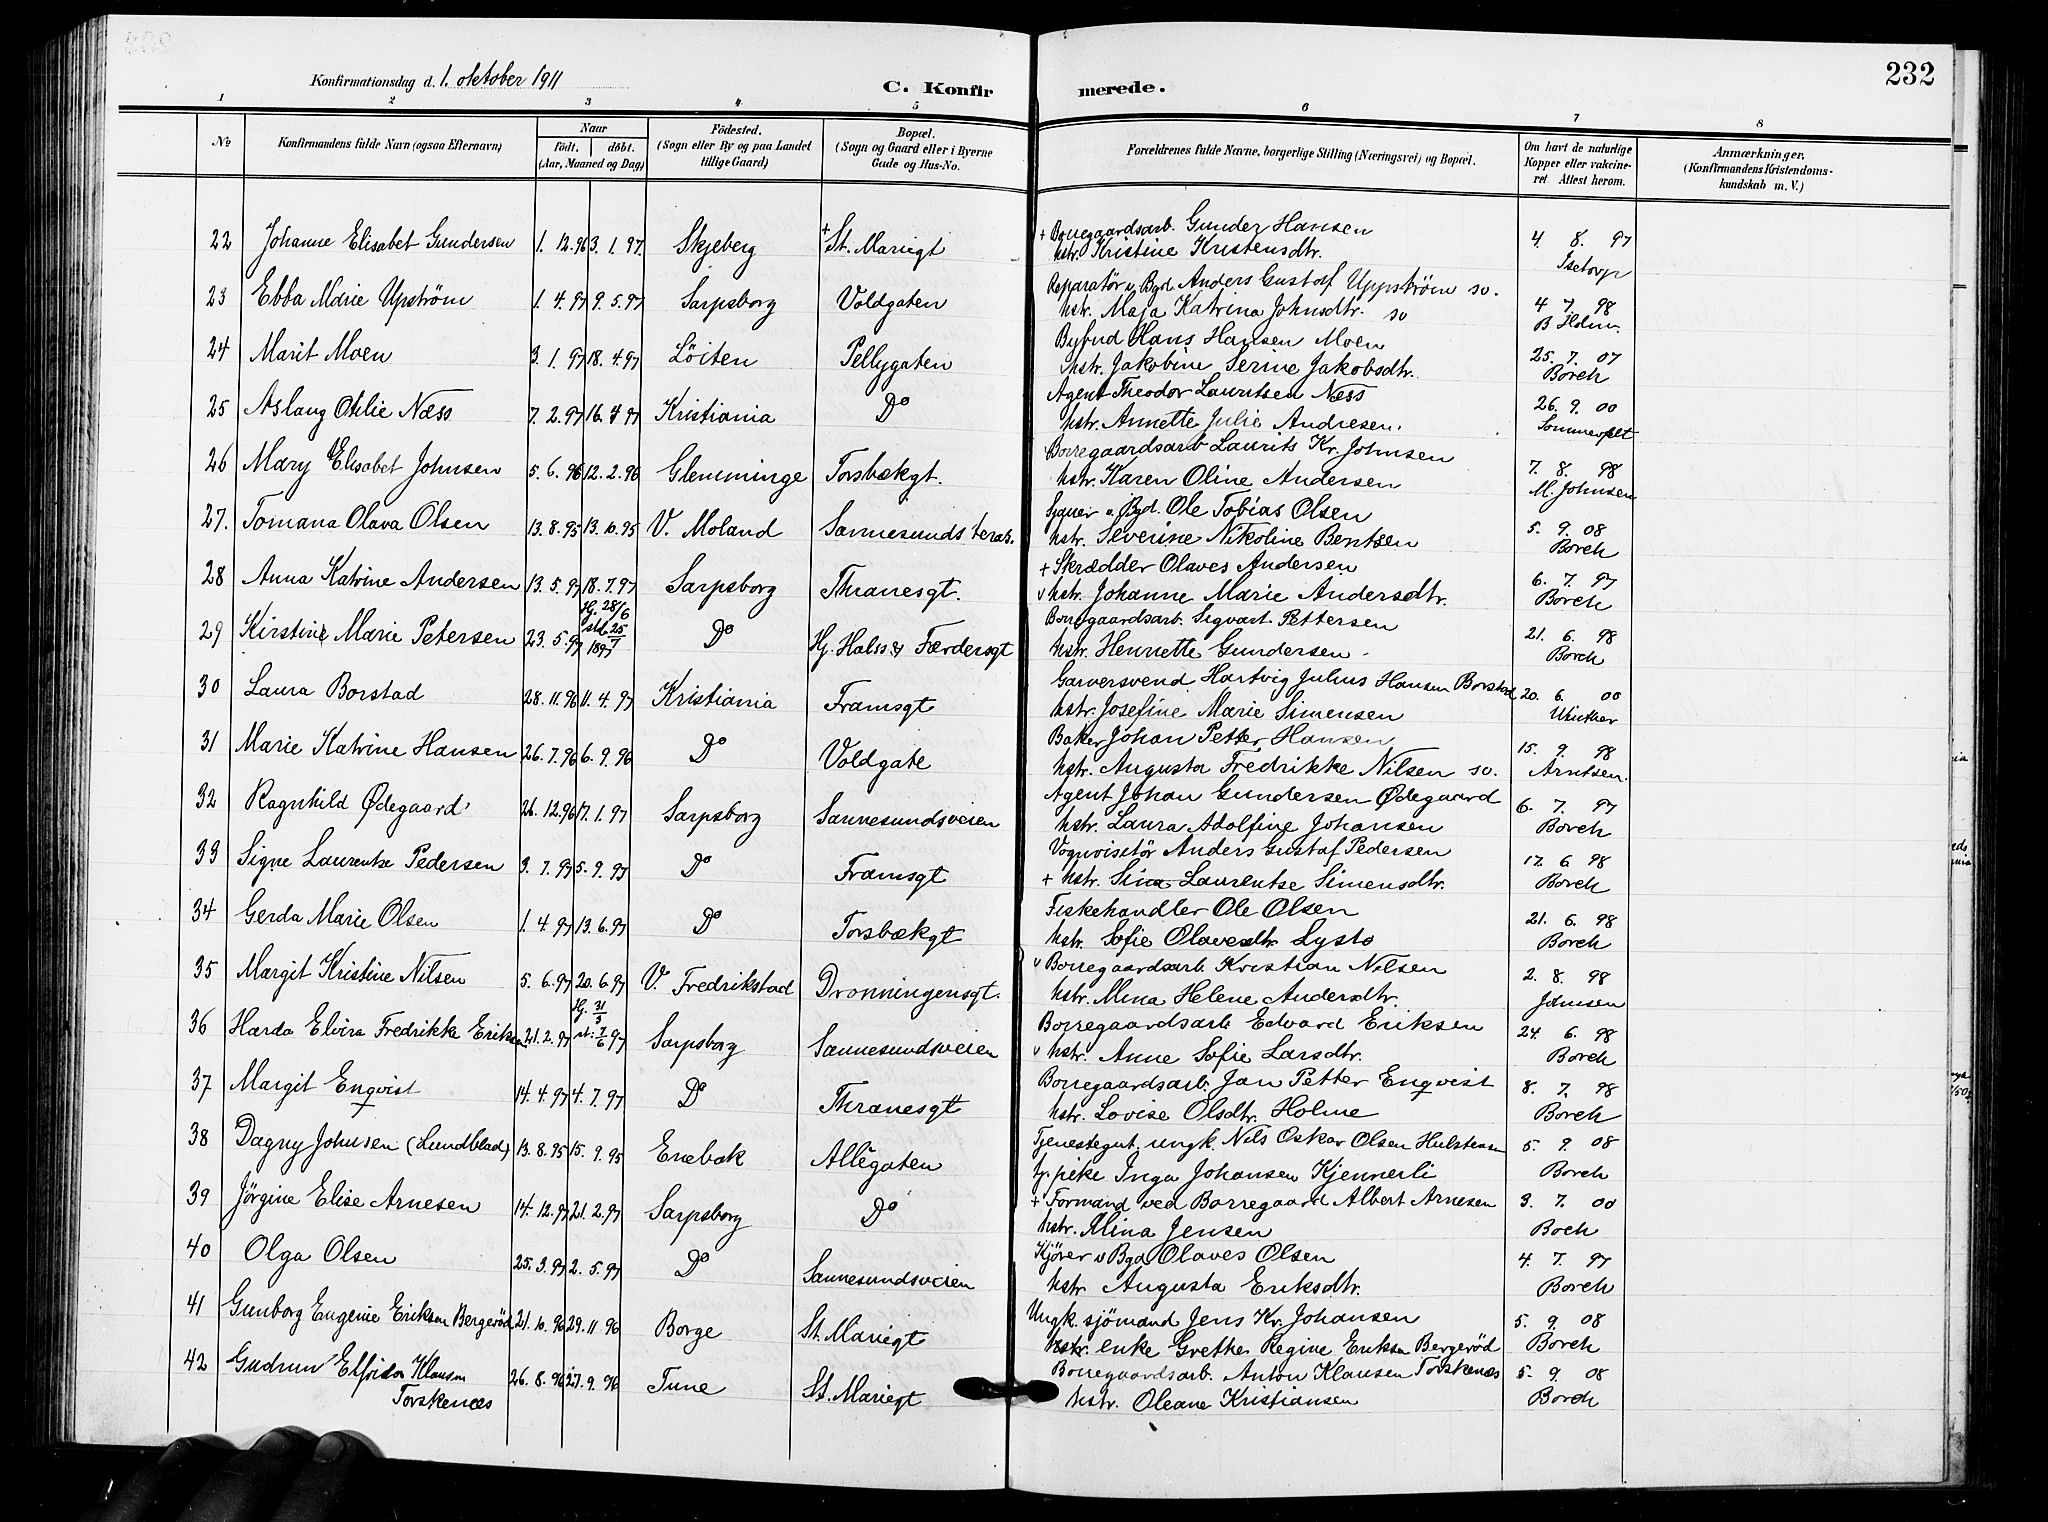 232
Konfirmationsdag d. 1. oktober 1911
C. Konfirmerede.
1 2 3 4 5 6 7 8
№ Konfirmandens fulde Navn (ogsaa Efternavn) Naar födt. döbt. (Aar, Maaned og Dag) Födested. (Sogn eller By og paa Landet tillige Gaard) Bopæl. (Sogn og Gaard eller i Byerne Gade og Hus-No. Forældrenes fulde Navne, borgerlige Stilling (Næringsvei) og Bopæl. Om havt de naturlige Kopper eller vakcineret. Attest herom. Anmærkninger. (Konfirmandens Kristendomskundskab m. V.)
22 Johanne Elisabet Gundersen 1. 12. 96 3. 1. 97. Skjeberg + St. Mariegt + Borregaardsarb. Gunder Hansen 4. 8. 97
hstr. Kristine Kristensdtr. Isetorp
23 Ebba Marie Upström 1. 4. 97 9. 5. 97 Sarpsborg Voldgaten Reparatör v. Bgd. Anders Gustaf Uppström sv. 4 7. 98
hstr. Maja Katrina Johnsdtr. sv B Holm.
24 Marit Moen 3. 1. 97 18. 4. 97 Löiten Pellygaten Bybud Hans Hansen Moen 25. 7. 07
hstr. Jakobine Serine Jakobsdtr. Borch
25 Aslaug Otilie Næss 7. 2. 97 16. 4 97 Kristiania Do Agent Theodor Lauritsen Næss 26. 9. 00
hstr. Annette Julie Andresen. Sommerfelt
26 Mary Elisabet Johnsen 5. 6. 96 12. 2. 96 Glemminge Torsbækgt. Borregaardsarb Laurits Kr. Johnsen 7. 8. 98
hstr. Karen Oline Andersen M. Johnsen
27. Tomana Olava Olsen 13. 8. 95 13. 10. 95 V. Moland Sannesunds teras. v. Bgd. Ole Tobias Olsen 5. 9. 08
hstr. Severine Nikoline Bentsen Borch
28 Anna Katrine Andersen 13. 5. 97 18. 7. 97 Sarpsborg Thranesgt. + Skrædder Olaves Andersen 6. 7. 97
v hstr. Johanne Marie Andersdtr. Borch
29 Kirstine Marie Petersen 23. 5. 97 Hj. 28/6 std. 25/7 1897 Do Hj. Halss. & Færdersgt Borregaardsarb. Sigvart Pettersen 21. 6. 98
hstr. Henriette Gundersen Borch
30 Laura Borstad 28. 11. 96 11. 4. 97 Kristiania Framsgt Garversvend Hartvig Julius Hansen Borstad 20. 6. 00
hstr. Josefine Marie Simensen Winther
31 Marie Katrine Hansen 26. 7. 96 6. 9. 96 Do Voldgate Baker Johan Petter Hansen 15. 9. 98
hstr. Augusta Fredrikke Nilsen sv. Arntsen.
32 Ragnhild Ödegaard 26. 12. 96 17. 1. 97 Sarpsborg Sannesundsveien Agent Johan Gundersen Ödegaard 6. 7. 97
hstr. Laura Adolfine Johansen Borch
33 Signe Laurentse Pedersen 3. 7. 97 5. 9. 97 Do Framsgt Vognvisetör Anders Gustaf Pedersen 17. 6. 98
+ hstr. Sina Laurentse Simensdtr. Borch
34 Gerda Marie Olsen 1. 4. 97 13. 6. 97 Do Torsbækgt Fiskehandler Ole Olsen 21. 6. 98
hstr. Sofie Olavesdtr Lysto Borch
35 Margit Kristine Nilsen 5. 6. 97 20. 6. 97 V. Fredrikstad Dronningensgt. v Borregaardsarb. Kristian Nilsen 2. 8. 98
hstr. Mina Helene Andersdtr. Johnsen
36 Harda Elvira Fredrikke Eriksen 21. 2. 97 Hj. 31/3 st: 7/6 97 Sarpsborg Sannesundsveien Borregaardsarb. Edvard Eriksen 24. 6. 98
v hstr. Anne Sofie Larsdtr. Borch
37 Margit Enqvist 14. 4. 97 4. 7. 97 Do Thranesgt Borregaardsarb. Jan Petter Enqvist 8. 7. 98
hstr. Lovise Olsdtr. Holme Borch
38 Dagny Johnsen (Lundblad) 13. 8. 95 15. 9. 95 Enebak Allégaten Tjenestegut, ungk. Nils Oskar Olsen Hulsteren 5. 9. 08
pike Inga Johansen Kjennerli Borch
39 Jörgine Elise Arnesen 14. 12. 97 21. 2. 97 Sarpsborg Do + Formand ved Borregaard Albert Arnesen 3. 7. 00
hstr. Alina Jensen Boch
40 Olga Olsen 25. 3. 97 2. 5. 97 Do Sannesundsveien Kjörer v Bgd Olaves Olsen 4. 7. 97
hstr Augusta Eriksdtr. Borch
41 Gunborg Eugenie Eriksen Bergeröd 21. 10. 96 29. 11 96 Borge St. Mariegt Ungk. sjömand Jens Kr. Johansen 5. 9. 08
hstr. enke Grethe Regine Eriksen Bergeröd Borch
42 Gudrun Elfrida Klausen Torskenæs 26. 8. 96 27. 9. 96 Tune St. Mariegt Borregaardsarb. Anton Klausen Torskenæs 5. 9. 08
hstr. Oleane Kristiansen Borch